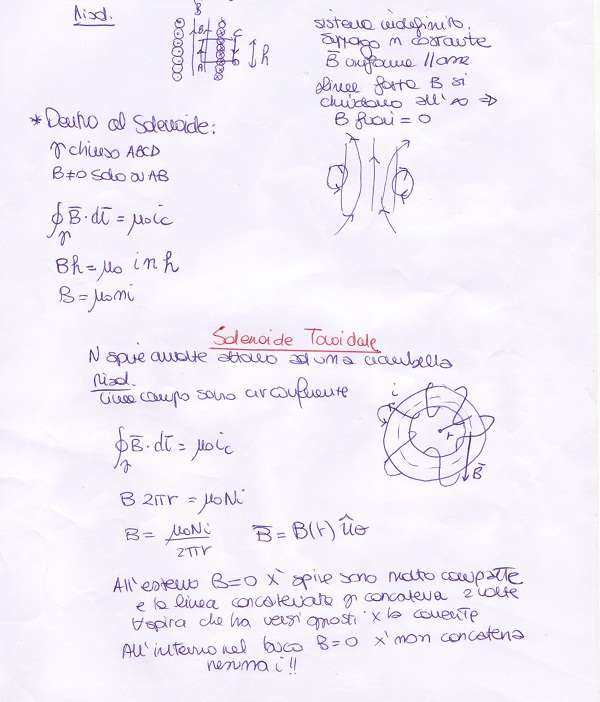 Risol.
B
B
C
A
D
h
sistema indefinito.
B̄ uniforme // asse
linee forza B si
chiudono all'∞ ⇒
B fuori = 0
* Dentro al Solenoide:
γ chiuso ABCD
B≠0 solo su AB
∮γ B̄·dl̄ = μ₀ic
Bh = μ₀ i n h
B = μ₀ni
Solenoide Toroidale
N spire avvolte attorno ad una ciambella
Risol.
linee campo sono circonferenze
i
r
B̄
∮γ B̄·dl̄ = μ₀ic
B 2πr = μ₀Ni
B = μ₀Ni / 2πr    B̄ = B(r) ûθ
All'esterno B=0 x' spire sono molto compatte
e la linea concatenata γ concatena 2 volte
∀ spira che ha versi opposti x la corrente
All'interno nel buco B=0 x' non concatena
nessuna i!!